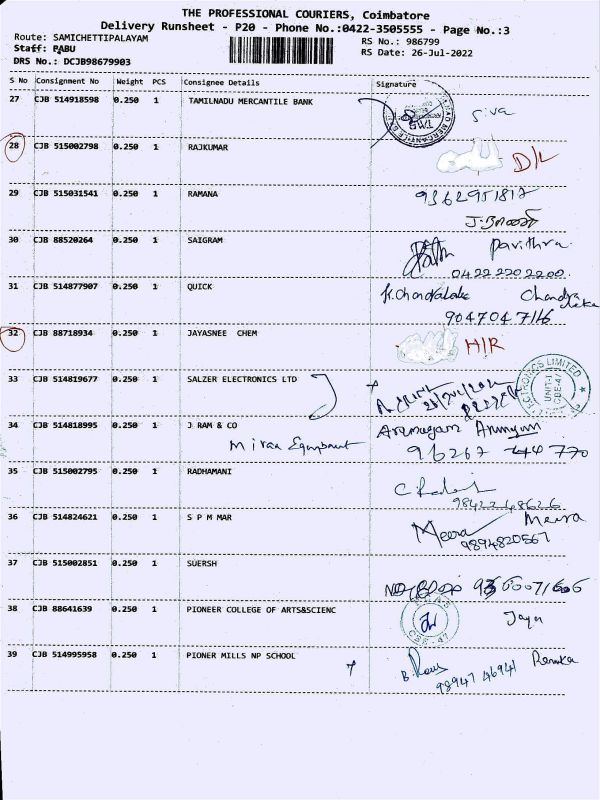 THE PROFESSIONAL COURIERS, Coimbatore
Delivery Runsheet - P20 - Phone No.:0422-3505555 - Page No.:3
Route: SAMICHETTIPALAYAM
RS No.: 986799
Staff: PABU
RS Date: 26-Jul-2022
DRS No.: DCJB98679903
S No Consignment No Weight PCS Consignee Details Signature
27 CJB 514918598 0.250 1 TAMILNADU MERCANTILE BANK Siva
28 CJB 515002798 0.250 1 RAJKUMAR D/L
29 CJB 515031541 0.250 1 RAMANA
30 CJB 88520264 0.250 1 SAIGRAM Pavithra
0422 220 2200
31 CJB 514877907 0.250 1 QUICK K. Chandralake Chandra leka
9047047116
32 CJB 88718934 0.250 1 JAYASNEE CHEM H/R
33 CJB 514819677 0.250 1 SALZER ELECTRONICS LTD
34 CJB 514818995 0.250 1 J RAM & CO Arumugam Arumugam
35 CJB 515002795 0.250 1 RADHAMANI
9842248626
36 CJB 514824621 0.250 1 S P M MAR Meera Meera
9894820567
37 CJB 515002851 0.250 1 SUERSH
38 CJB 88641639 0.250 1 PIONEER COLLEGE OF ARTS&SCIENC Jaya
39 CJB 514995958 0.250 1 PIONER MILLS NP SCHOOL Renuka
98947 46941